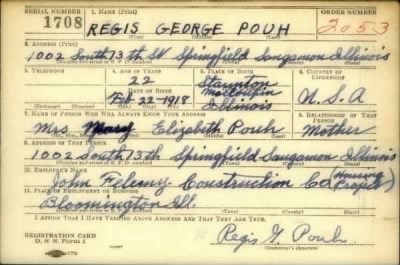 SERIAL NUMBER 1. NAME (Print) ORDER NUMBER
1708 REGIS GEORGE POUH 2053
(First) (Middle) (Last)
2. ADDRESS (Print)
1002 South 13th St Springfield Sangamon Illinois
(Number and street or R. F. D. number) (Town) (County) (State)
3. TELEPHONE 4. AGE IN YEARS 5. PLACE OF BIRTH 6. COUNTRY OF CITIZENSHIP
22 Staunton
DATE OF BIRTH (Town or county)
Feb 22-1918 Illinois U.S.A
(Exchange) (Number) (Mo.) (Day) (Yr.) (State or country)
7. NAME OF PERSON WHO WILL ALWAYS KNOW YOUR ADDRESS 8. RELATIONSHIP OF THAT PERSON
Mrs. Mary Elizabeth Pouh Mother
(Mr., Mrs., Miss) (First) (Middle) (Last)
9. ADDRESS OF THAT PERSON
1002 South 13th Springfield Sangamon Illinois
(Number and street or R. F. D. number) (Town) (County) (State)
10. EMPLOYER'S NAME
John Felgany Construction Co (Housing Project)
11. PLACE OF EMPLOYMENT OR BUSINESS
Bloomington Ill.
(Number and street or R. F. D. number) (Town) (County) (State)
I AFFIRM THAT I HAVE VERIFIED ABOVE ANSWERS AND THAT THEY ARE TRUE.
REGISTRATION CARD
D. S. S. Form 1 Regis G. Pouh
(Registrant's signature)